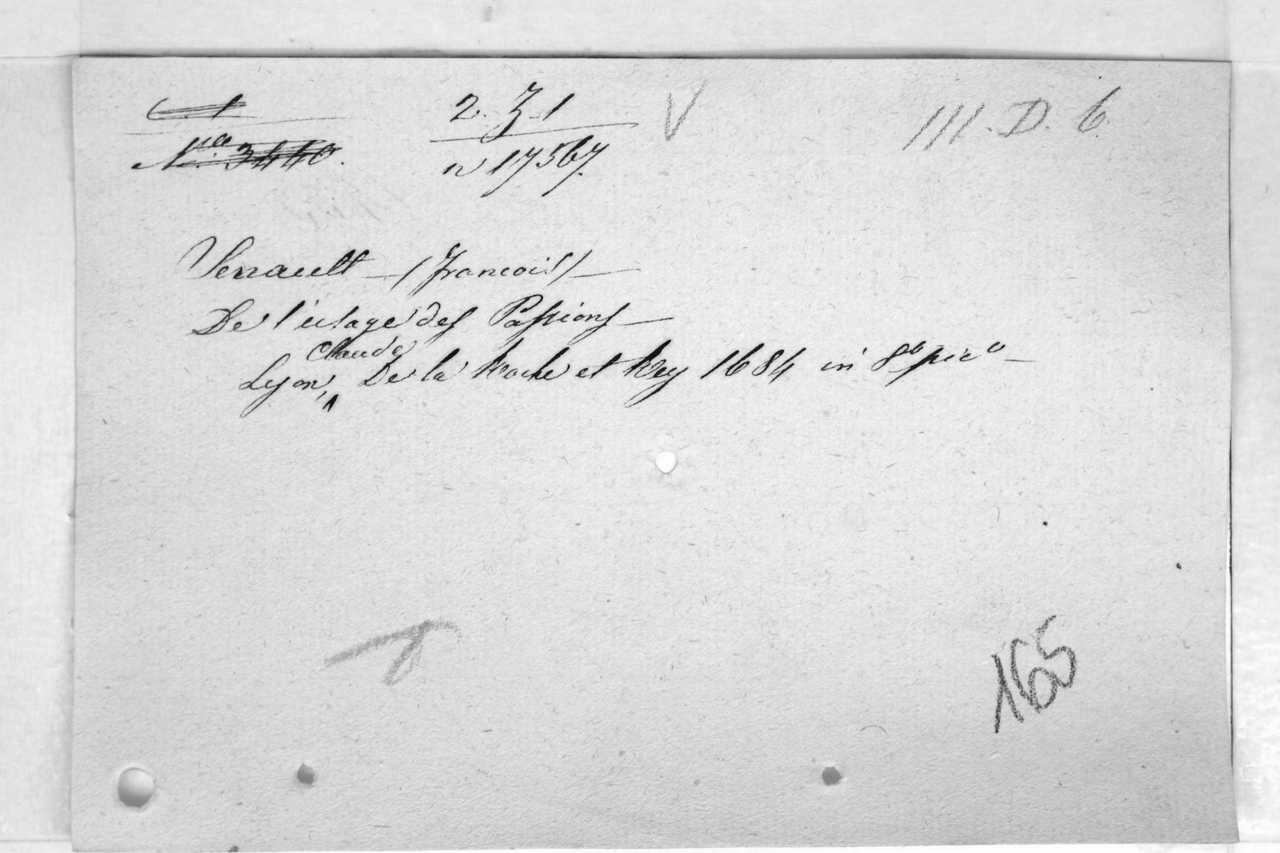 2. Z. 1
V
III. D. 6.
N.ro 3440.
n 17567.
Senault (Francois)
De l'usage des Passions
Claude
Lyon, De la Roche et Rey 1684 in 8º picº
165